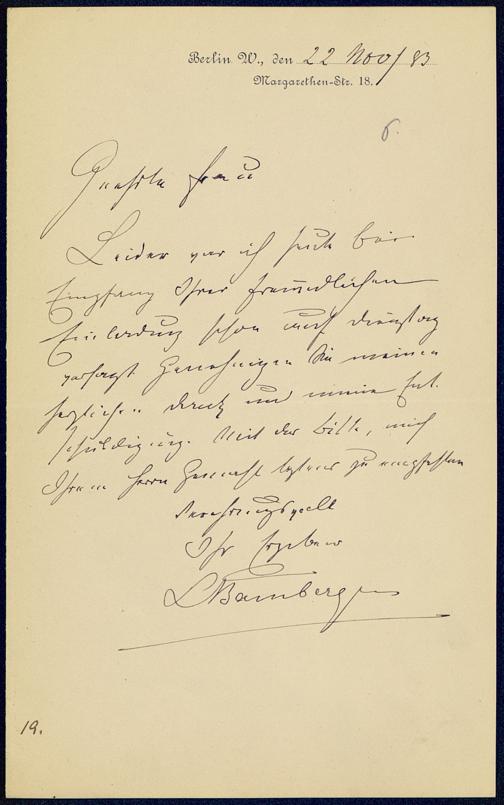 Berlin W., den 22 Nov / 83
Margarethen-Str. 18.
6.
Geehrte Frau
Leider war ich heute bei
Empfang Ihrer freundlichen
Einladung schon auf Dienstag
versagt. Genehmigen Sie meinen
herzlichen Dank und meine Ent-
schuldigung. Mit der Bitte, mich
Ihrem Herrn Gemahl bestens zu empfehlen
Verehrungsvoll
Ihr Ergebener
LBamberger
19.